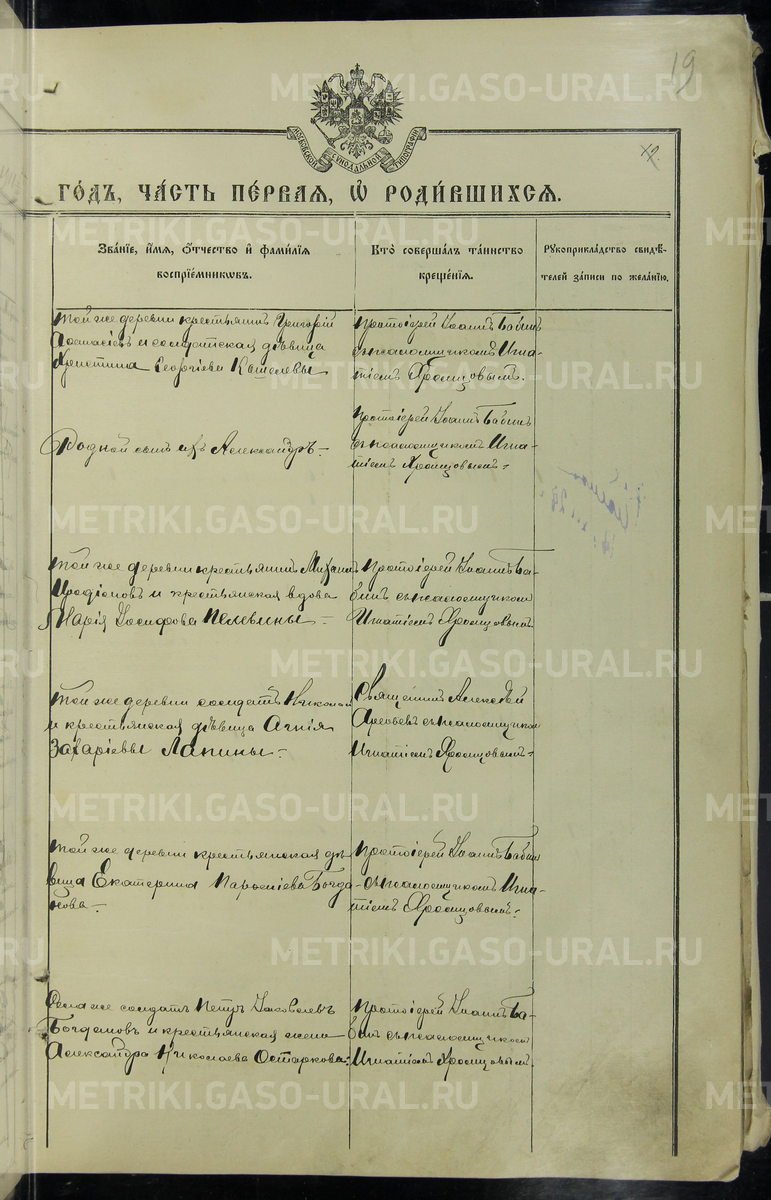 19
МОСКОВСКОЙ СѴНОДАЛЬНОЙ ТИПОГРАФІИ
ГО́ДЪ, ЧА́СТЬ ПЕ́РВАЯ, Ѽ РОДИ́ВШИХСЯ.
Зва́нїе, и́мя, ѻ́тчество и҆ фами́лїя
воспрїе́мниковъ.
Кто̀ соверша́лъ та́инство
креще́нїя.
Рукоприкла́дство свидѣ́-
телей за́писи по жела́нїю.
Той же деревни крестьянинъ Григорій
и солдатская дѣвица
Христина Георгіевы Кышелевы
Протоіерей Іоаннъ Бабинъ
съ псаломщикомъ Игна-
тіемъ
Родной сынъ ихъ Александръ
Протоіерей Іоаннъ Бабинъ
съ псаломщикомъ Игна-
тіемъ
Той же деревни крестьянинъ Михаилъ
и крестьянская вдова
Марія Іосифова Пелевины
Протоіерей Іоаннъ Ба-
бинъ съ псаломщикомъ
Игнатіемъ
Той же деревни солдатъ Николай
и крестьянская дѣвица Агнія
Захаріевы Лапины
Священникъ Алексѣй
Арефьевъ съ псаломщикомъ
Игнатіемъ
Той же деревни крестьянская дѣ-
вица Екатерина Богда-
нова
Протоіерей Іоаннъ Бабинъ
съ псаломщикомъ Игна-
тіемъ
Села же солдатъ Петръ Іаковлевъ
Богдановъ и крестьянская жена
Александра Николаева Остаркова
Протоіерей Іоаннъ Ба-
бинъ съ псаломщикомъ
Игнатіемъ
METRIKI.GASO-URAL.RU